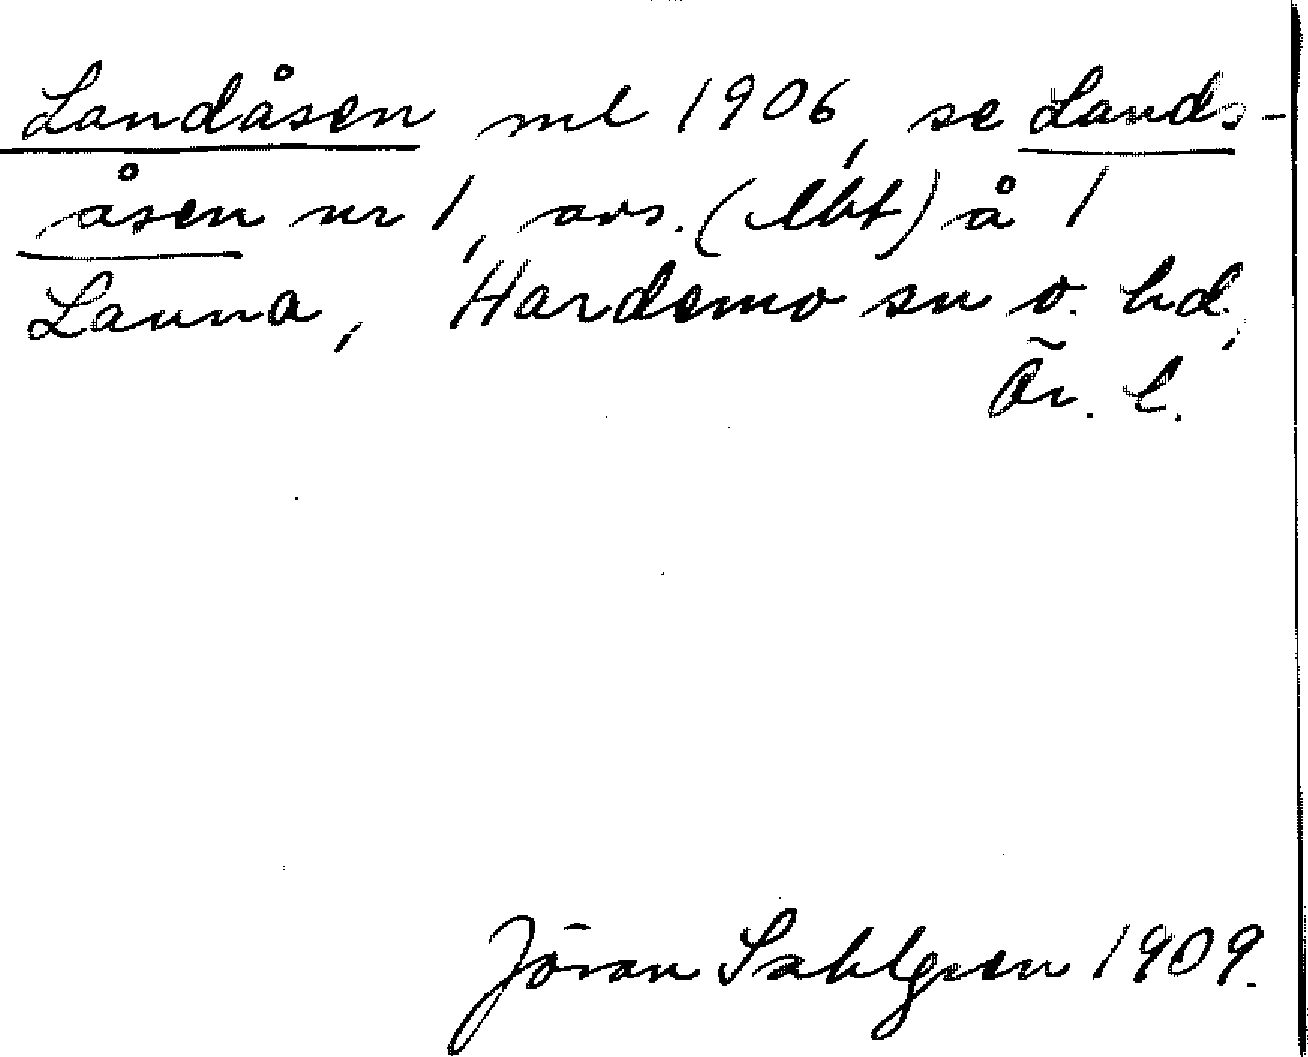 Landåsen ml 1906, se Lands-
åsen nr 1, avs. (lht) å 1
Launa, Hardemo sn o. hd,
Ör. l.
Jöran Sahlgren 1909.